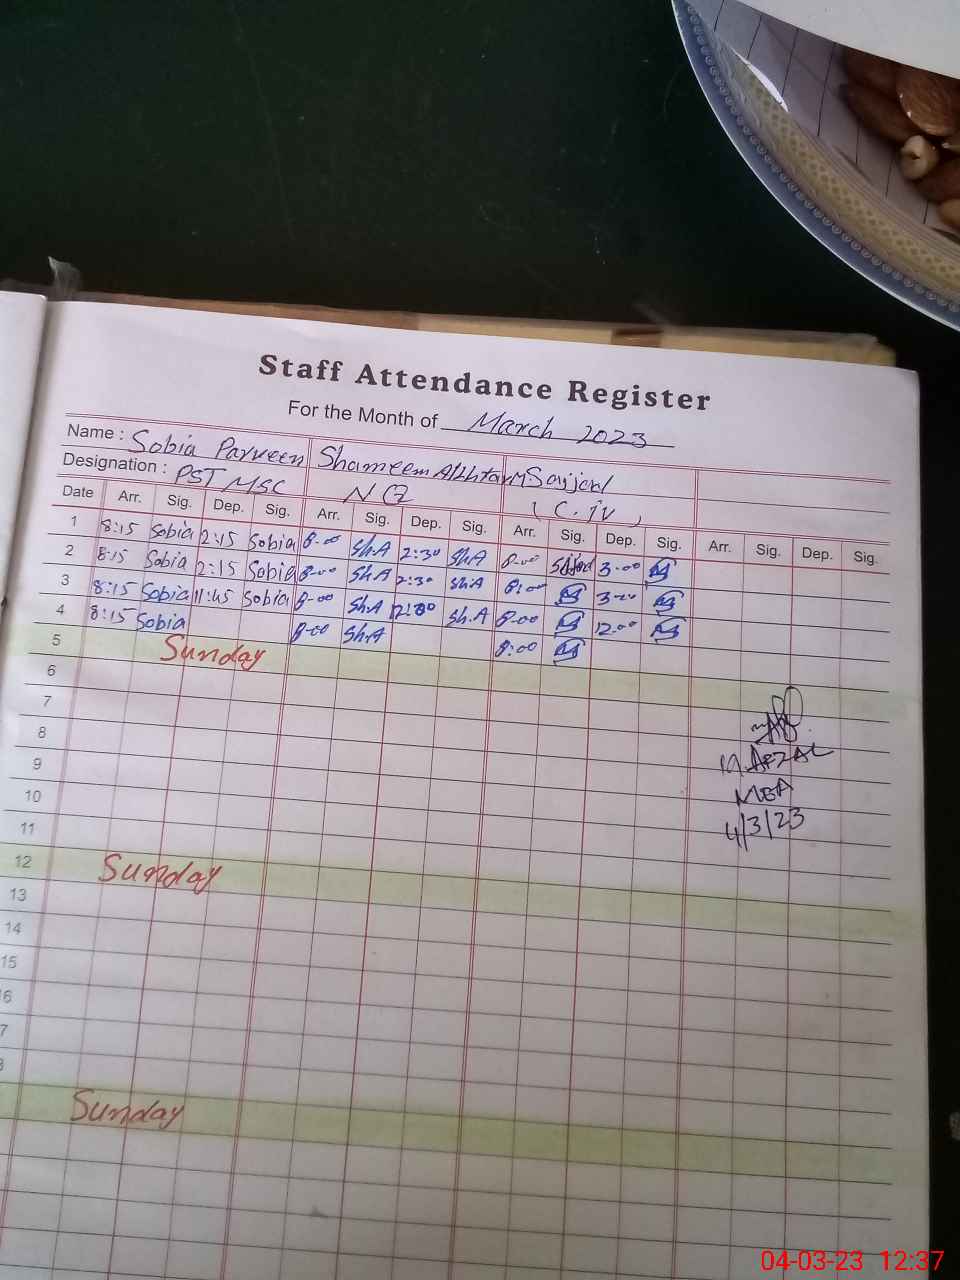 Staff Attendance Register
For the Month of March 2023
Name : Sobia Parveen Shameem Akhtar M Sajjad
Designation : PST MSC NQ (C.iv)
Date Arr. Sig. Dep. Sig. Arr. Sig. Dep. Sig. Arr. Sig. Dep. Sig. Arr. Sig. Dep. Sig.
1 8:15 Sobia 2:15 Sobia 8:00 Sh.A 2:30 Sh.A 8:00 3:00
2 8:15 Sobia 2:15 Sobia 8:00 Sh.A 2:30 Sh.A 8:00 3:00
3 8:15 Sobia 11:45 Sobia 8:00 Sh.A 12:00 Sh.A 8:00 12:00
4 8:15 Sobia 8:00 Sh.A 8:00
5 Sunday
6
7
8
9 M.AFZAL
10 MEA
11 4/3/23
12 Sunday
13
14
15
6
7
Sunday
04-03-23 12:37